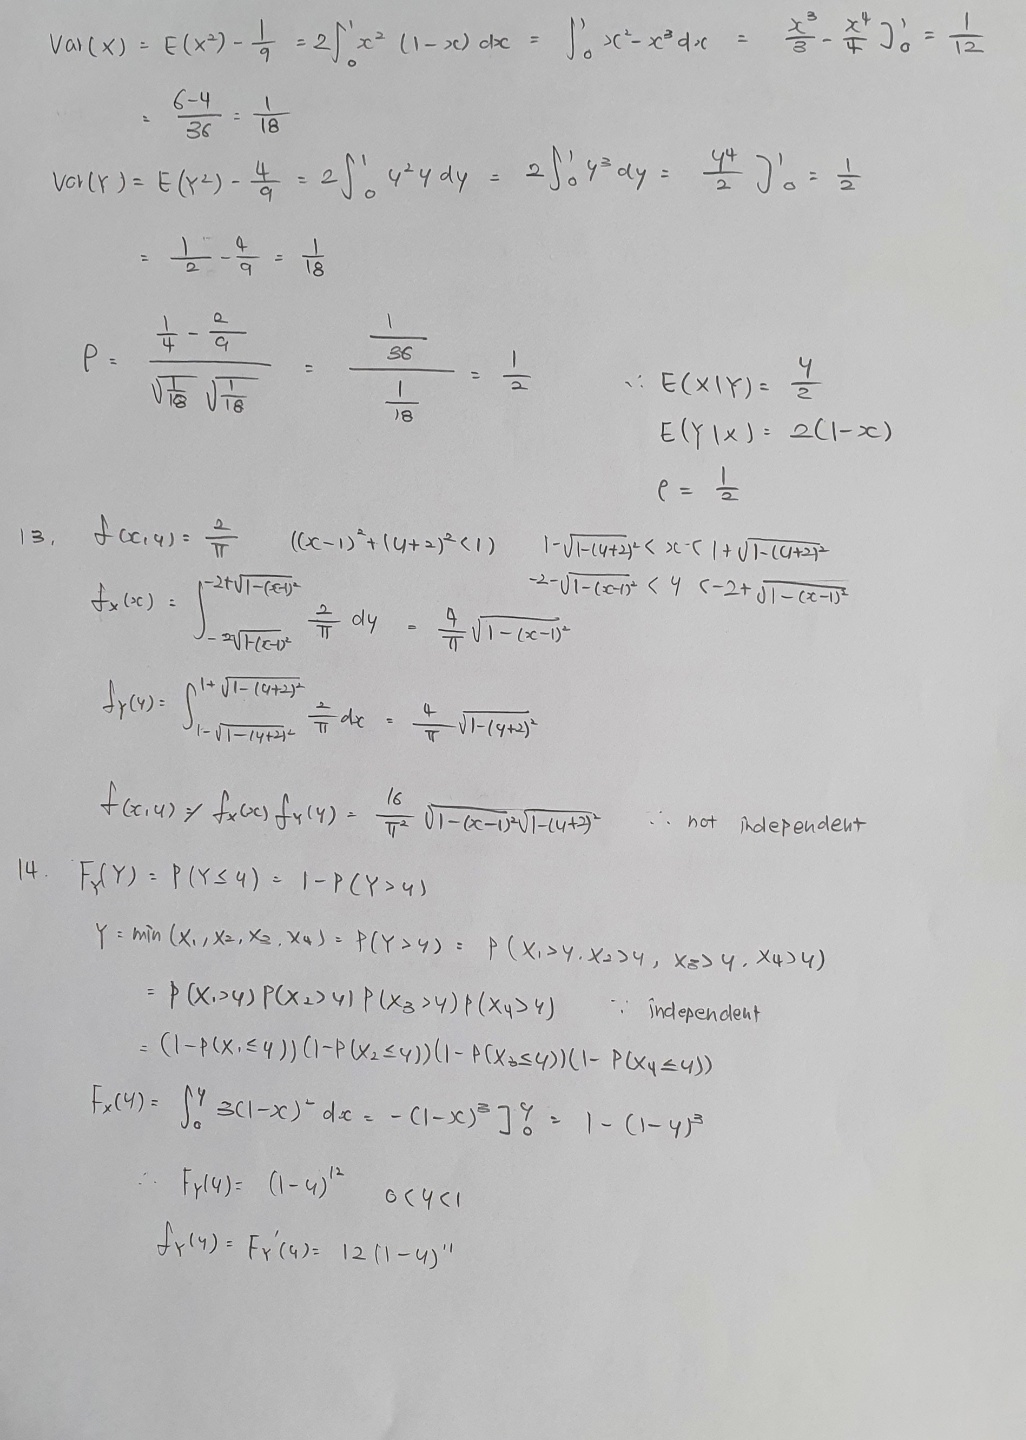 Var(X) = E(X²) - 1/9 = 2∫₀¹ x² (1-x) dx = ∫₀¹ x²-x³ dx = x³/3 - x⁴/4 ]₀¹ = 1/12
= 6-4/36 = 1/18
Var(Y) = E(Y²) - 4/9 = 2∫₀¹ y²y dy = 2∫₀¹ y³ dy = y⁴/2 ]₀¹ = 1/2
= 1/2 - 4/9 = 1/18
ρ = (1/4 - 2/9)/(√(1/18) √(1/18)) = (1/36)/(1/18) = 1/2
∴ E(X|Y) = y/2
E(Y|X) = 2(1-x)
ρ = 1/2
13. f(x,y) = 2/π ((x-1)²+(y+2)²<1) 1-√(1-(y+2)²) < x < 1+√(1-(y+2)²)
-2-√(1-(x-1)²) < y < -2+√(1-(x-1)²)
fx(x) = ∫_{-2√(1-(x-1)²)}^{-2+√(1-(x-1)²)} 2/π dy = 4/π √(1-(x-1)²)
fY(y) = ∫_{1-√(1-(y+2)²)}^{1+√(1-(y+2)²)} 2/π dx = 4/π √(1-(y+2)²)
f(x,y) ≠ fx(x) fy(y) = 16/π² √(1-(x-1)²) √(1-(y+2)²) ∴ not independent
14. FY(Y) = P(Y≤y) = 1-P(Y>y)
Y = min (X₁, X₂, X₃, X₄) = P(Y>y) = P(X₁>y, X₂>y, X₃>y, X₄>y)
= P(X₁>y) P(X₂>y) P(X₃>y) P(X₄>y) ∵ independent
= (1-P(X₁≤y)) (1-P(X₂≤y)) (1-P(X₃≤y)) (1-P(X₄≤y))
Fx(y) = ∫₀ʸ 3(1-x)² dx = -(1-x)³ ]₀ʸ = 1-(1-y)³
∴ FY(y) = (1-y)¹² 0<y<1
fY(y) = FY'(y) = 12(1-y)¹¹